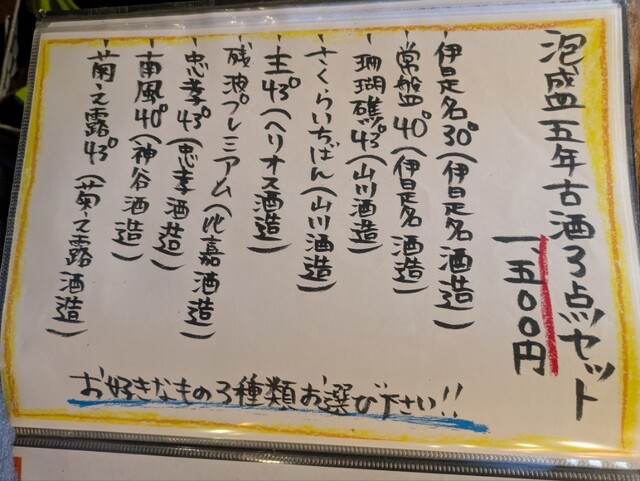 泡盛五年古酒3点セット
一五〇〇円
伊是名30°(伊是名酒造)
常盤40°(伊是名酒造)
珊瑚礁43°(山川酒造)
さくらいちばん(山川酒造)
主43°(ヘリオス酒造)
残波プレミアム(比嘉酒造)
忠孝43°(忠孝酒造)
南風40°(神谷酒造)
菊之露43°(菊之露酒造)
お好きなもの3種類お選び下さい!!